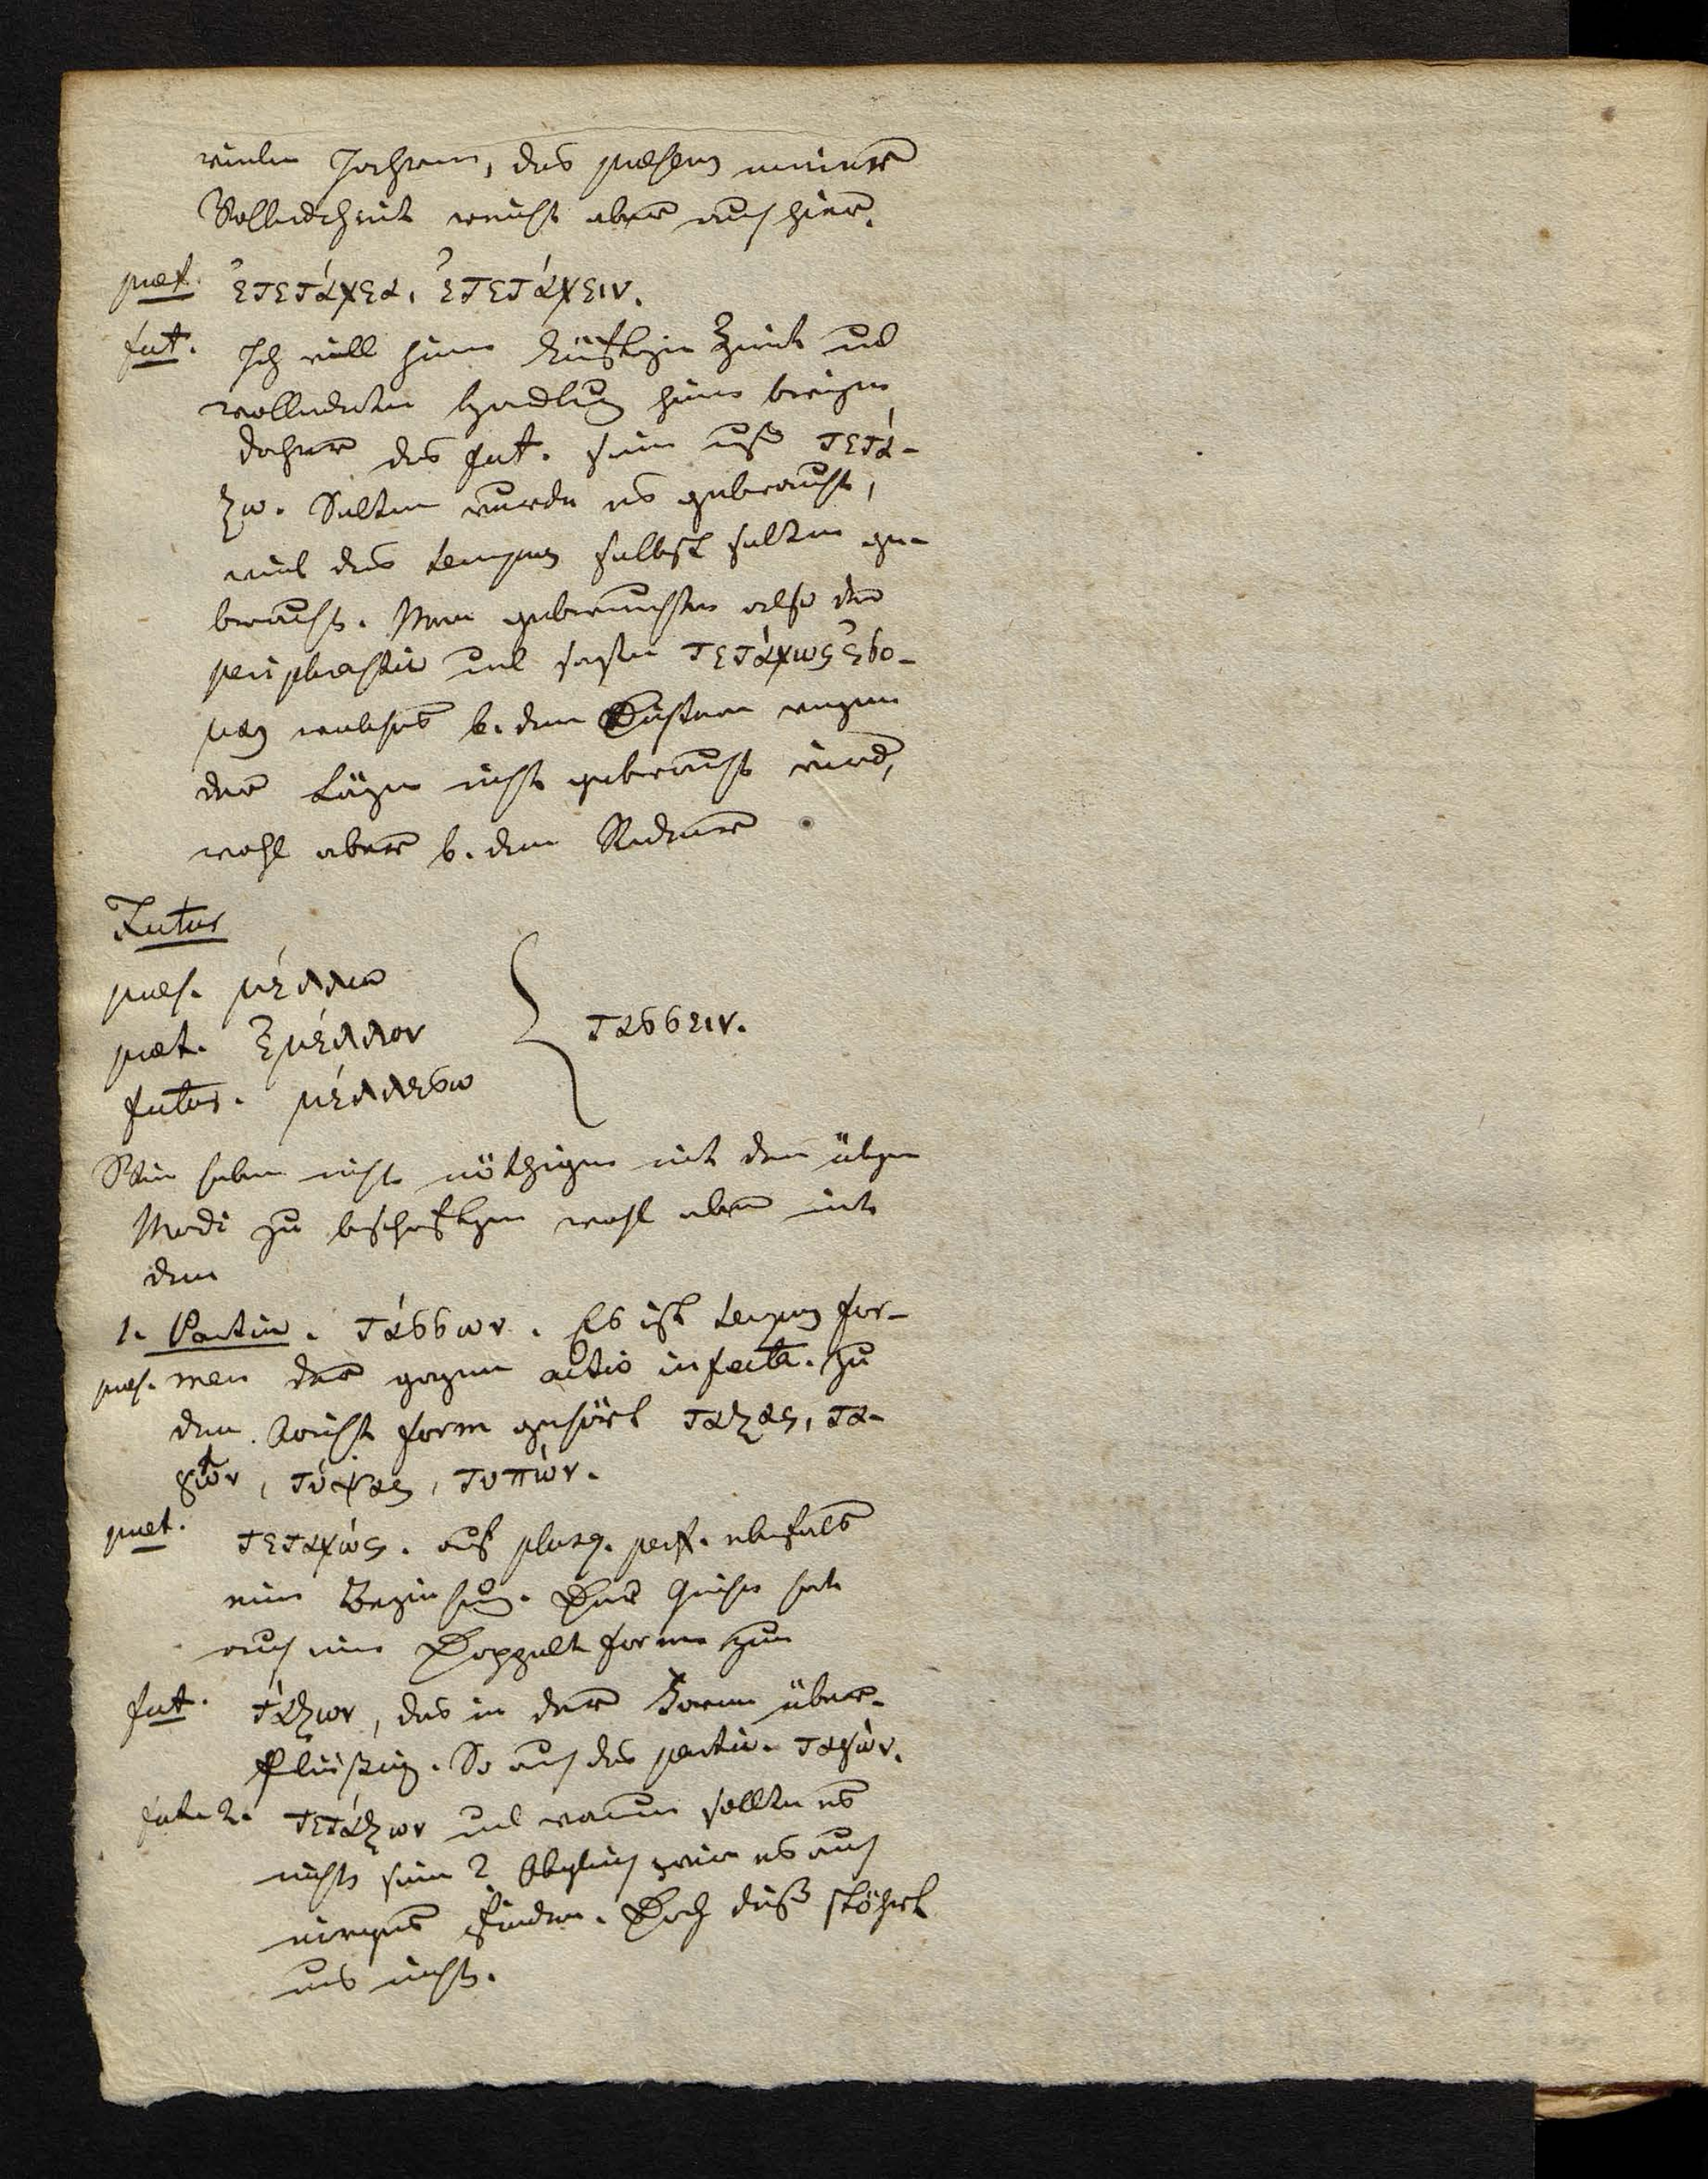 vielen Jahren, das præsens meiner
Vollendtheit reicht aber auch hier.
præt. ἐτετάχεα, ἐτετάχειν.
fut. Ich will hier künftge Zeit und
vollendete Handlung hier bringen
daher das fut. sein muß τετά-
ξω. Selten wurde es gebraucht,
weil das tempus selbst selten ge-
braucht. Man gebrauchte also das
periphrastic und sagte τετάχως ἐσο-
μαι welches b. den Dichtern wegen
der Länge nicht gebraucht wird,
wohl aber b. den Redner
Futur
præs. μέλλω
præt. Ἐμέλλον
futur. μέλλεσω
τασσειν.
Wir haben nicht nöthigen mit den übgen
Modi zu beschäftgen wohl aber mit
dem
1. Partic. τάσσων. Es ist tempus for-
præs. men der gegen actio infecta. Zu
dem Aorist form gehört ταξας, τα-
γών, τύψας, τυπών.
præt. τεταχώς. auf plusq. perf. ebenfals
eine Beziehung. Der Grieche hat
auch eine Doppelte form zum
fut. τάξων, das in der Form über-
flüßig. So auch das partic. ταγών.
fut. 2. τετάξων und warum sollte es
nicht sein? Obgleich wir es auch
nirgends finden. Doch dieß stöhrt
uns nicht.